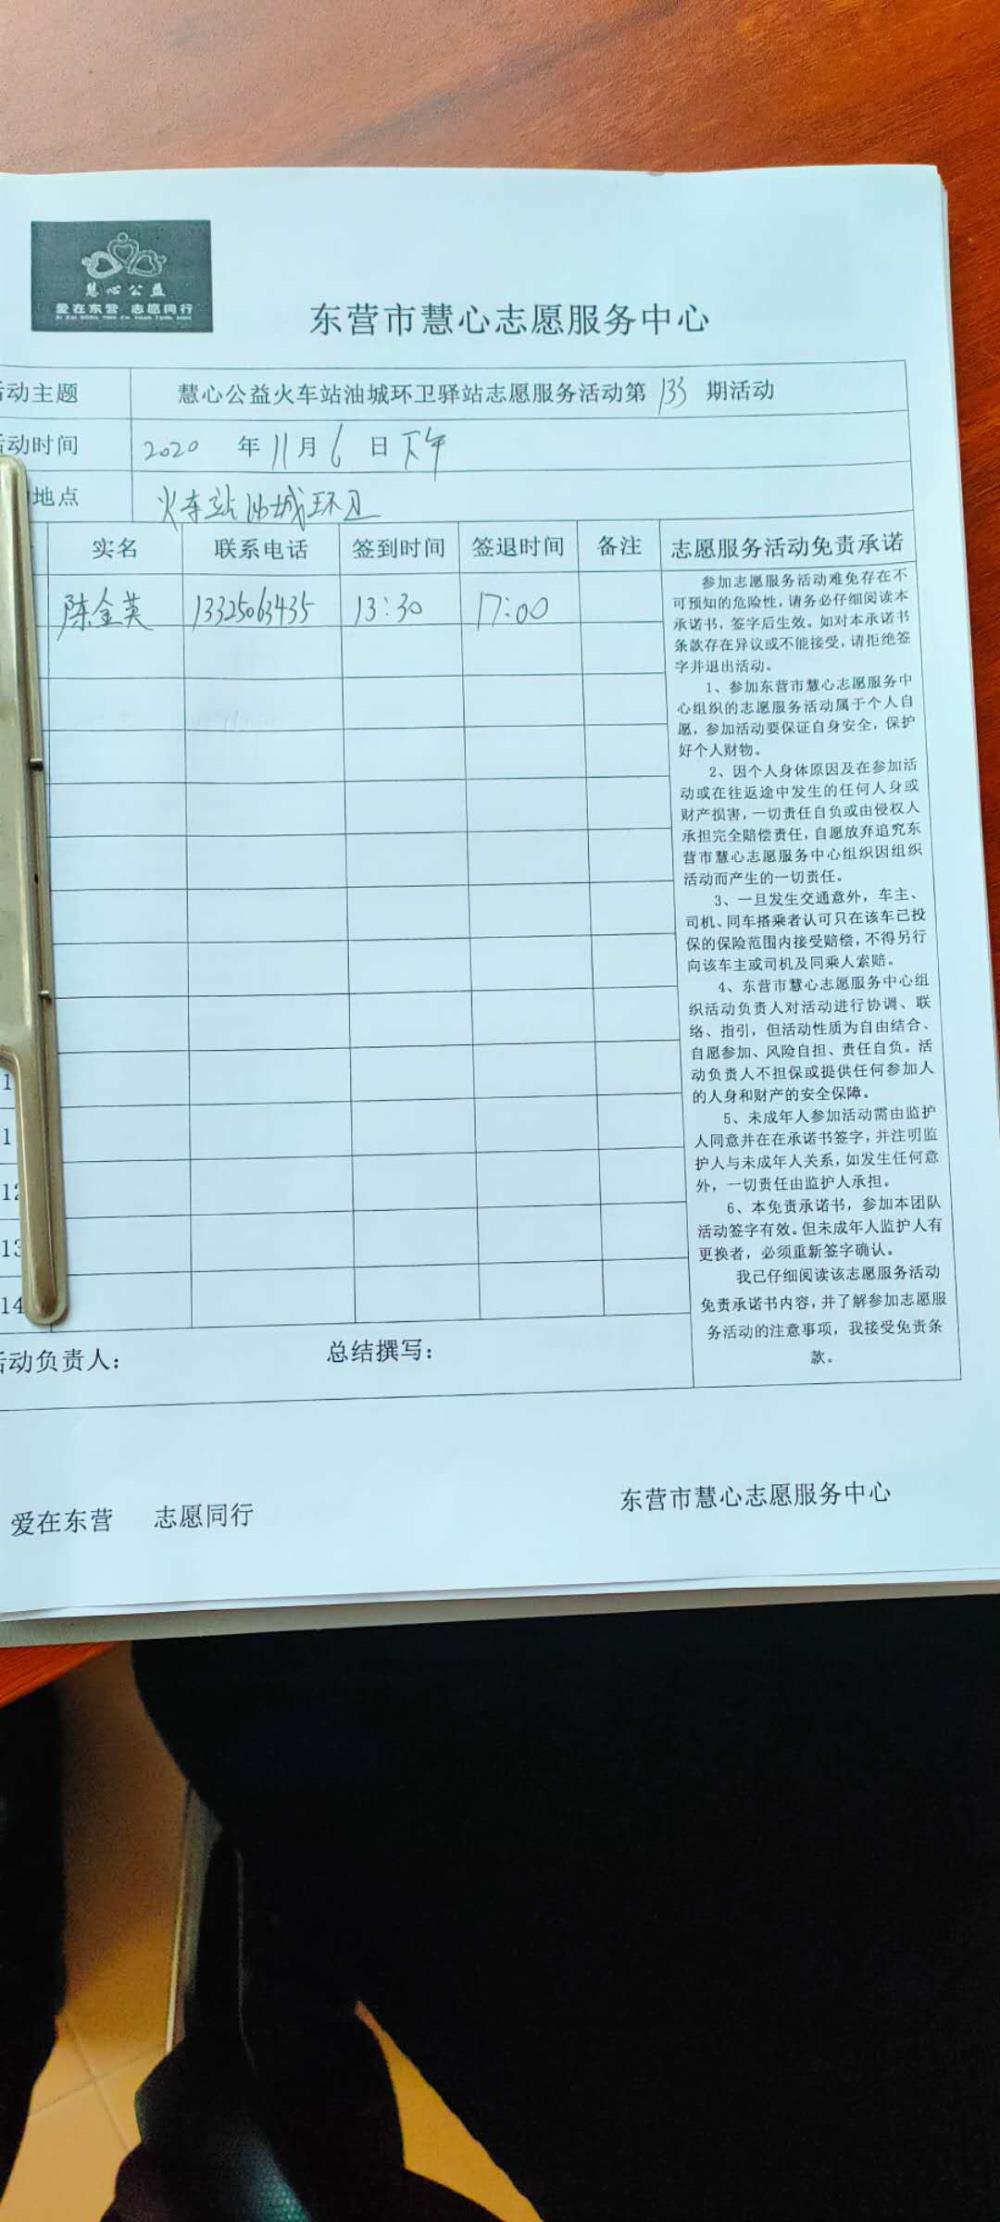 慧心公益
爱在东营 志愿同行
东营市慧心志愿服务中心
动主题 慧心公益火车站油城环卫驿站志愿服务活动第 133 期活动
动时间 2020 年 11 月 6 日 下午
地点 火车站油城环卫
实名 联系电话 签到时间 签退时间 备注 志愿服务活动免责承诺
陈金英 13325063435 13:30 17:00
参加志愿服务活动难免存在不
可预知的危险性,请务必仔细阅读本
承诺书,签字后生效。如对本承诺书
条款存在异议或不能接受,请拒绝签
字并退出活动。
1、参加东营市慧心志愿服务中
心组织的志愿服务活动属于个人自
愿,参加活动要保证自身安全,保护
好个人财物。
2、因个人身体原因及在参加活
动或在往返途中发生的任何人身或
财产损害,一切责任自负或由侵权人
承担完全赔偿责任,自愿放弃追究东
营市慧心志愿服务中心组织因组织
活动而产生的一切责任。
3、一旦发生交通意外,车主、
司机、同车搭乘者认可只在该车已投
保的保险范围内接受赔偿,不得另行
向该车主或司机及同乘人索赔。
4、东营市慧心志愿服务中心组
织活动负责人对活动进行协调、联
络、指引,但活动性质为自由结合、
自愿参加、风险自担、责任自负。活
动负责人不担保或提供任何参加人
的人身和财产的安全保障。
5、未成年人参加活动需由监护
人同意并在在承诺书签字,并注明监
护人与未成年人关系,如发生任何意
外,一切责任由监护人承担。
6、本免责承诺书,参加本团队
活动签字有效。但未成年人监护人有
更换者,必须重新签字确认。
我已仔细阅读该志愿服务活动
免责承诺书内容,并了解参加志愿服
务活动的注意事项,我接受免责条
款。
1
1
12
13
14
动负责人: 总结撰写:
爱在东营 志愿同行 东营市慧心志愿服务中心